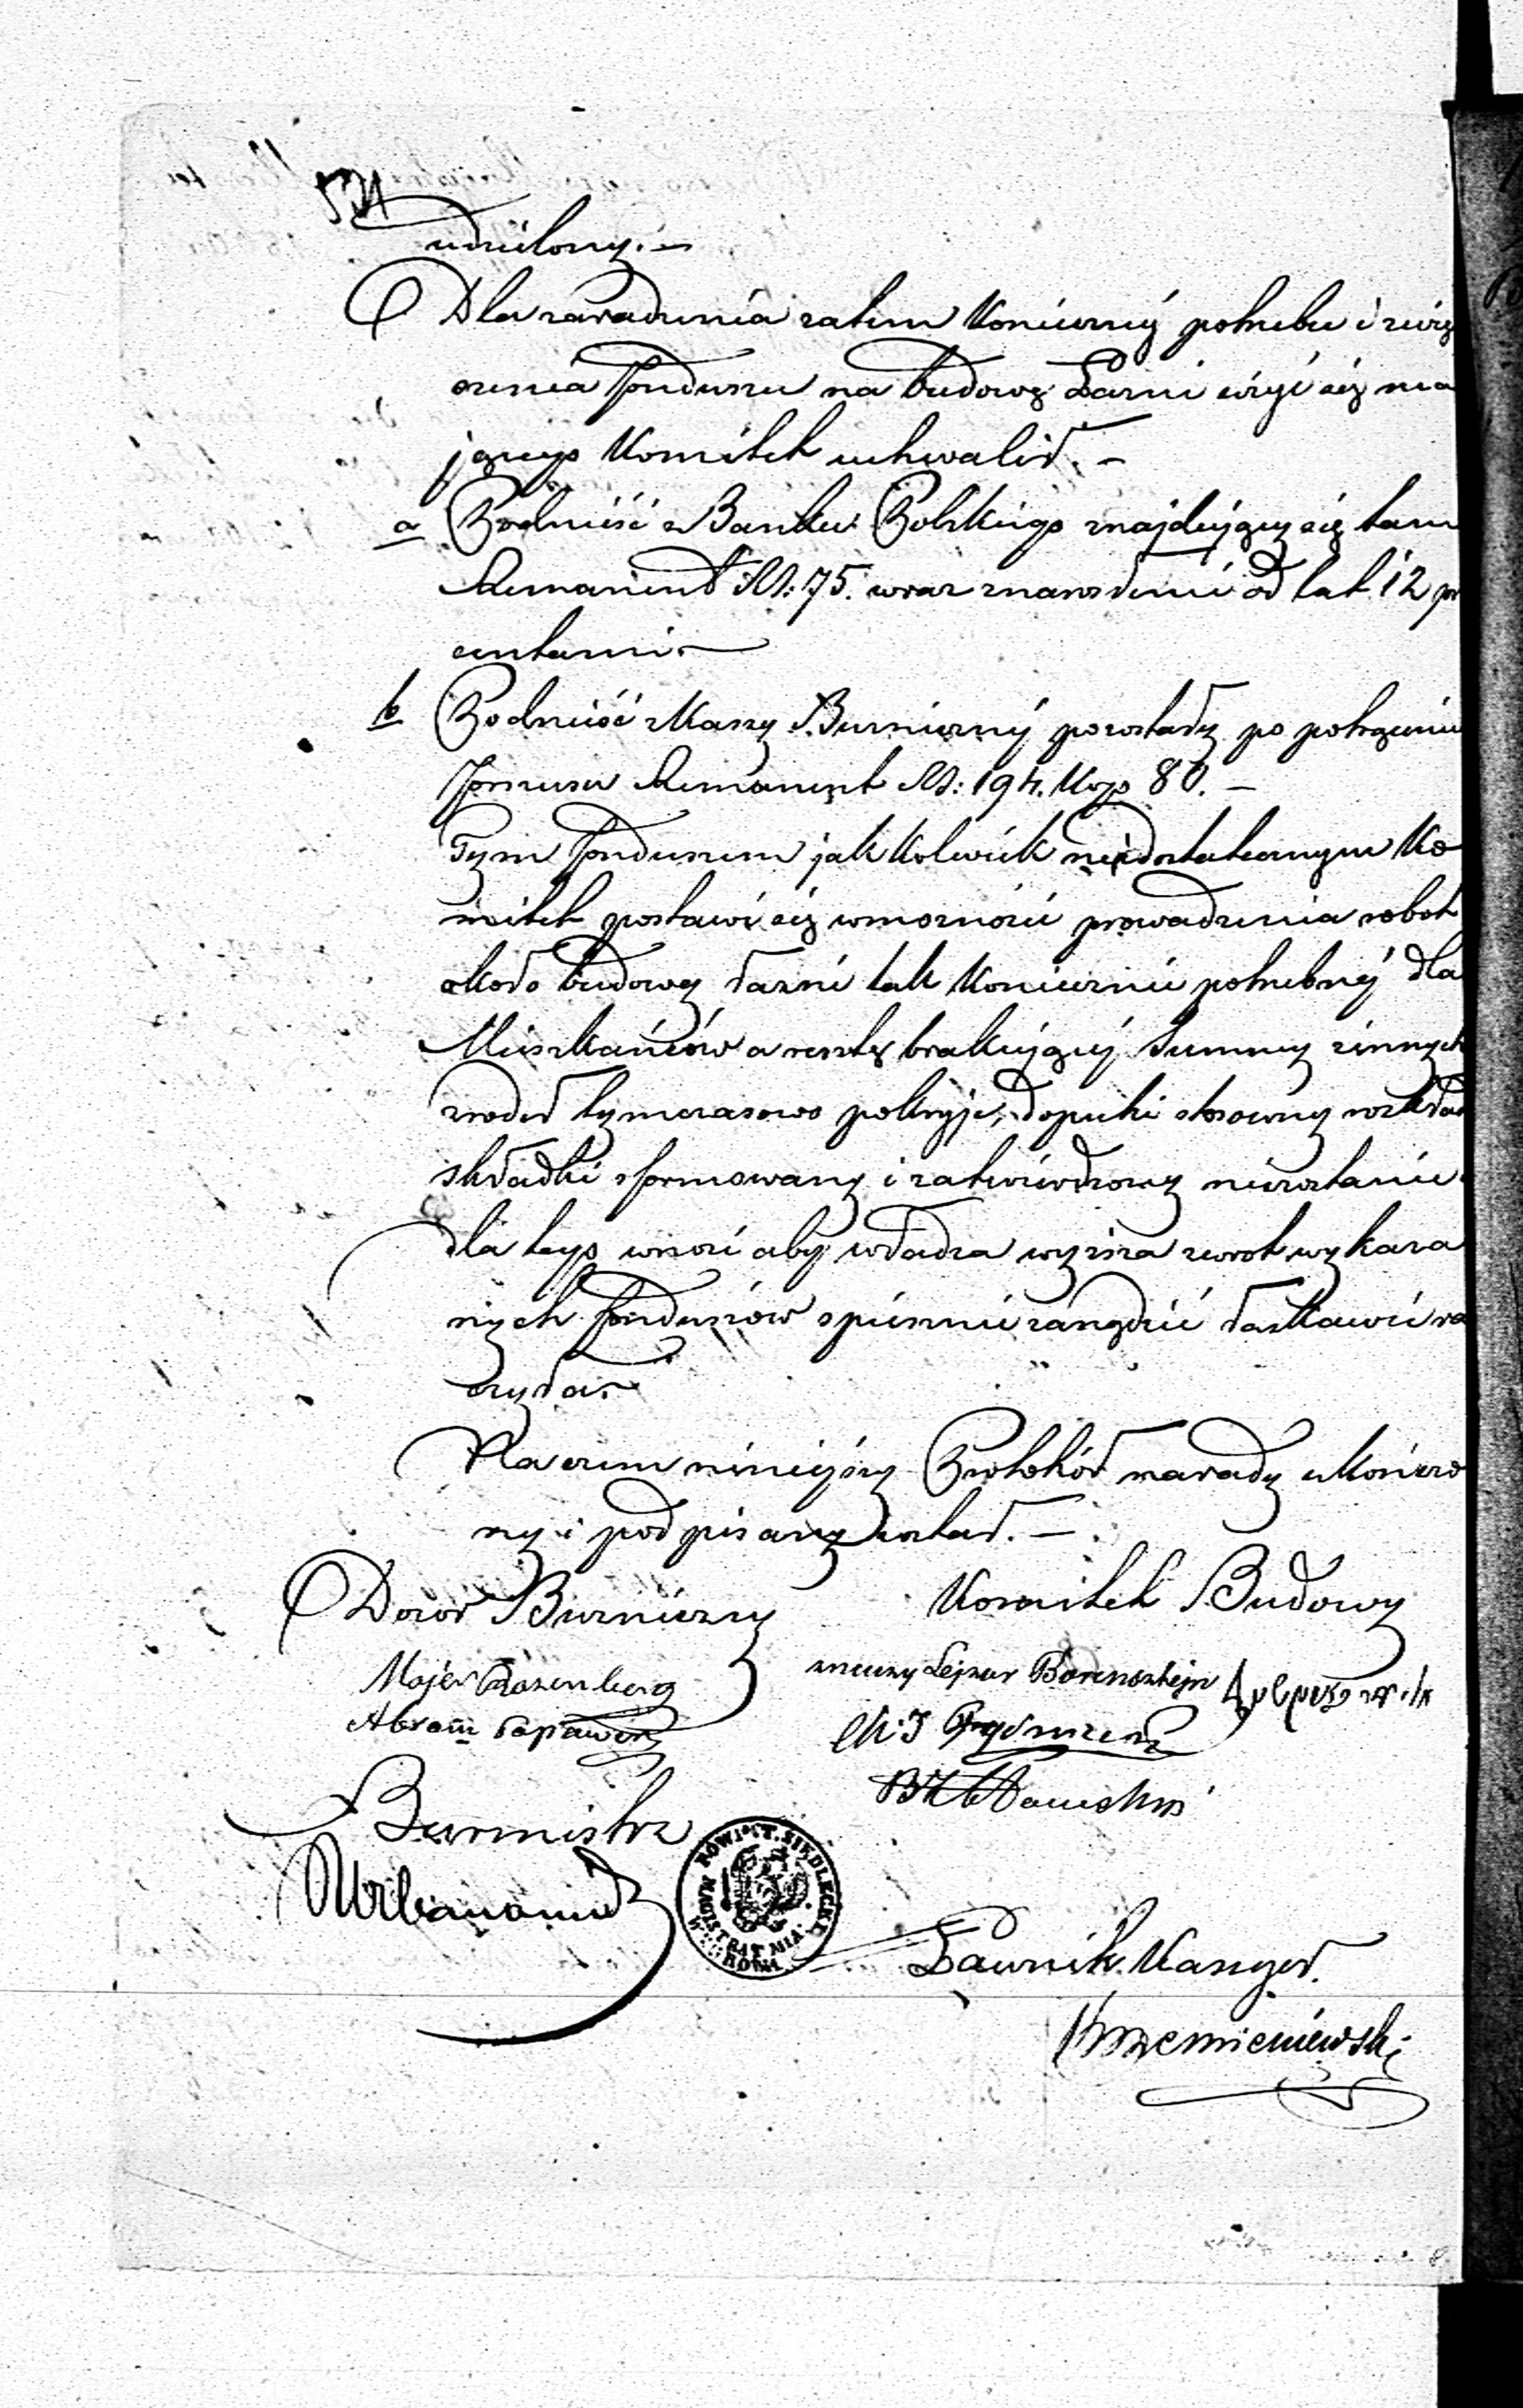 udzielony. —
Dla zaradzenia zatem koniecznéj potrzebie i zwięk
szenia funduszu na budowę Łazni użyć się ma
jącego Komitet uchwalił. —
a Podnieść z Banku Polskiego znajdujący się tam
Remanent Rs: 75. wraz z narosłemi od lat 12 pro
centami —
b Podnieść z Kassy Bużnicznéj pozostały po potrąceniu
Remanent Rs: 194. Kop 80. —
Tym funduszem jakkolwiek niedostatecznym Ko
mitet postawi się w możności prowadzenia robot
około budowy łazni tak koniecznie potrzebnéj dla
Mieszkańców a resztę brakującéj Summy z innych
zrodeł tymczasowo pokryje, dopuki stosowny rozkład
składki sformowany i zatwierdzony niezostanie.
dla tego wnosi aby władza wyższa zwrot wykaza
nych funduszów spiesznie zarządzić łaskawie ra
czyła. —
Na czem niniejszy Protokół narady ukończo
ny i podpisany został. —
Dozór Bużniczny Komitet Budowy
Majer Rozenberg Lejzor Borensztejn
Abram
Burmistrz
POWIAT. SIEDLECKI MAGISTRAT MIA
Ławnik Kassyer.
Krzemieniewski